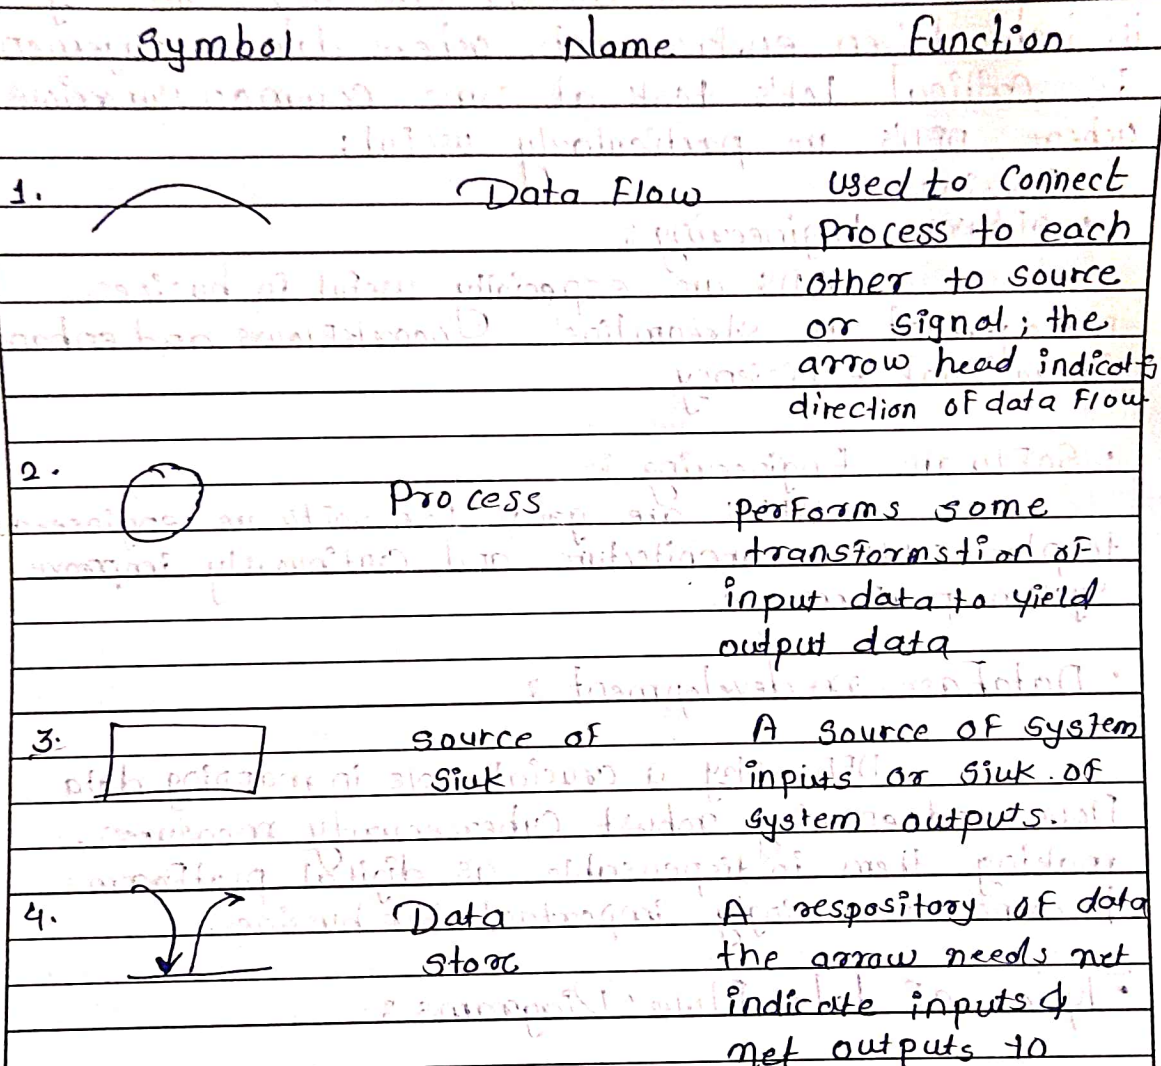 Symbol Name Function
1. Data Flow used to connect
process to each
other to source
or signal; the
arrow head indicats
direction of data flow
2. Process performs some
transformstion of
input data to yield
output data
3. source of A source of system
siuk inpiuts or siuk of
system outputs.
4. Data A respository of data
store the arrow needs net
indicate inputs &
net outputs to